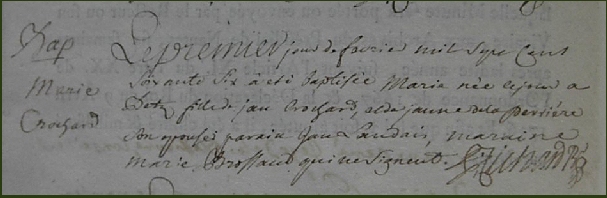 Bap
Marie
Crochard
Le premier jour de fevrier mil sept cent
soixante six a été baptisée Maria née le jour a
fille de jan Crochard, et de janne de la Perriére
son epouse parain jan Landais, maraine
marie Brossaud qui ne signent.